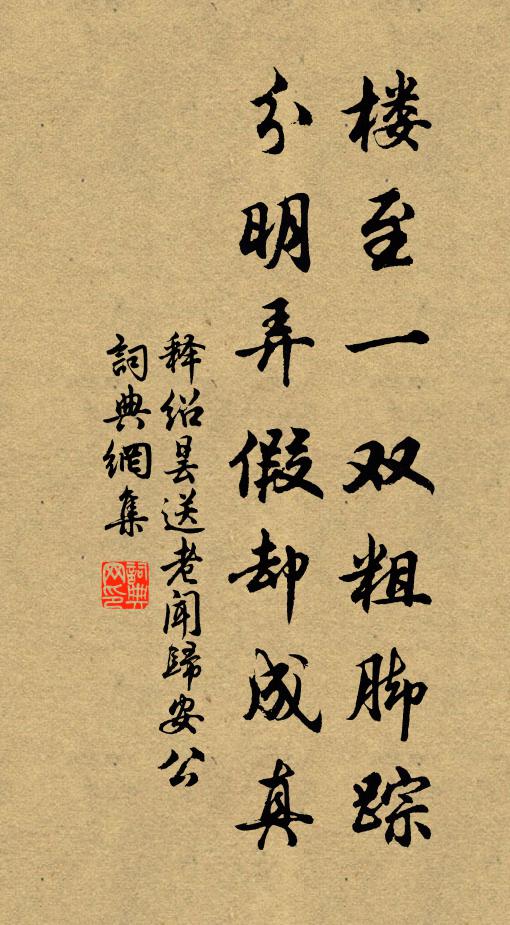 楼至一双粗脚踪
分明弄假却成真
释绍昙送老闻歸安公
詞典網集
詞典网印